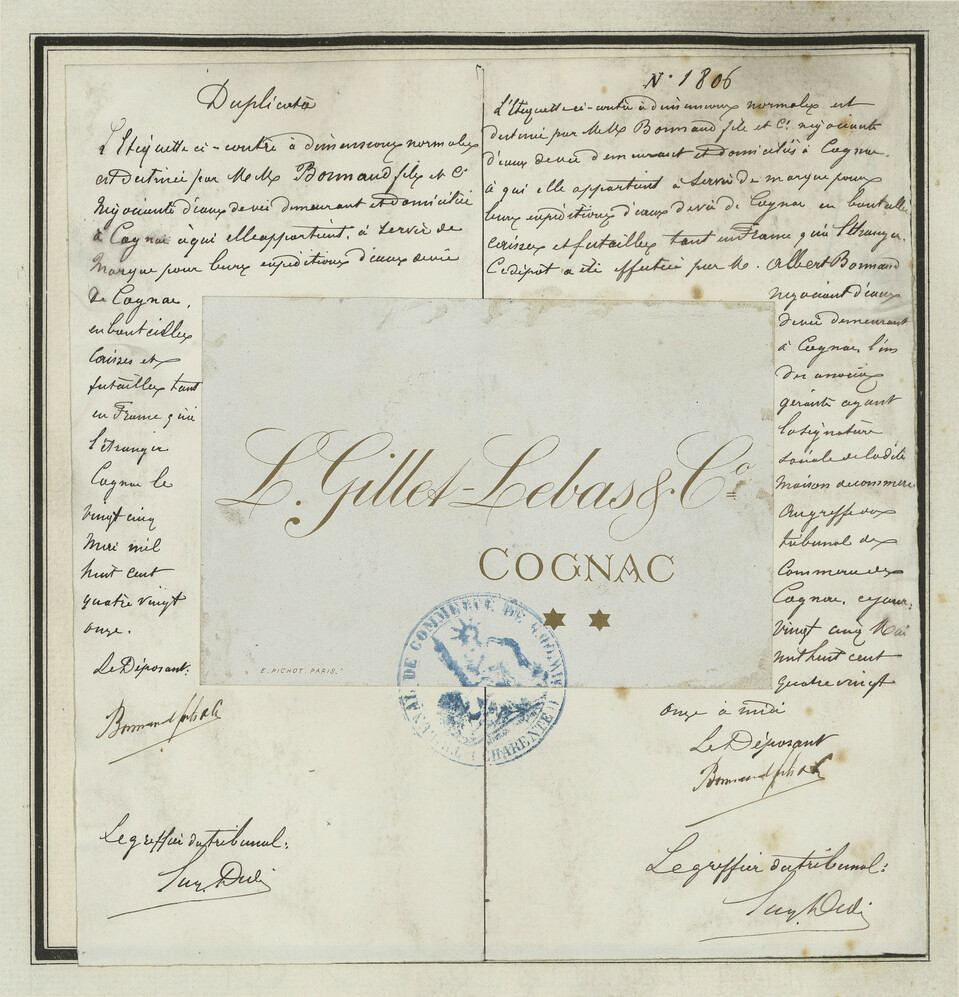 Duplicata
L'Etiquette ci-contre à dimensions normales
est destinée par M.M. Bonnaud fils et Cie
Négociants d'eaux de vie demeurant et domiciliés
à Cognac à qui elle appartient, à servir de
Marque pour leurs expéditions d'eaux de vie
de Cognac,
en bouteilles
Caisses et
futailles tant
en France qu'à
l'étranger
Cognac le
Vingt cinq
Mai mil
huit cent
quatre vingt
onze.
Le Déposant:
Bonnaud fils & Cie
Le greffier du tribunal:
N° 1806
L'Etiquette ci-contre à dimensions normales est
destinée par M.M. Bonnaud fils et Cie négociants
d'eaux de vie demeurant et domiciliés à Cognac.
à qui elle appartient à servir de marque pour
leurs expéditions d'eaux de vie de Cognac en bouteilles
caisses et futailles tant en France qu'à l'Etranger.
Ce dépôt a été effectué par M. Albert Bonnaud
négociant d'eaux
de vie demeurant
à Cognac, l'un
des associés
gérants ayant
la signature
sociale de la dite
Maison de commerce
Au greffe du
tribunal de
Commerce de
Cognac, ce jour:
Vingt cinq Mai
mil huit cent
quatre vingt
onze à midi
Le Déposant
Bonnaud fils & Cie
Le greffier du tribunal:
L. Gillet-Lebas & Co
COGNAC
E. PICHOT. PARIS.
TRIBUNAL DE COMMERCE DE COGNAC
(CHARENTE)